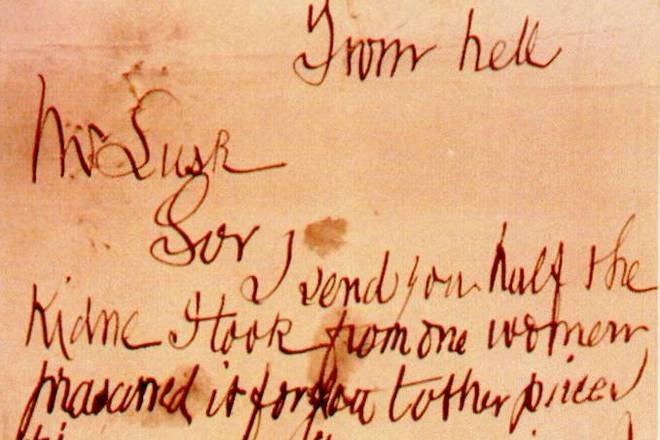 From hell
Mr Lusk
Sor
I send you half the
Kidne I took from one women
prasarved it for you tother piece